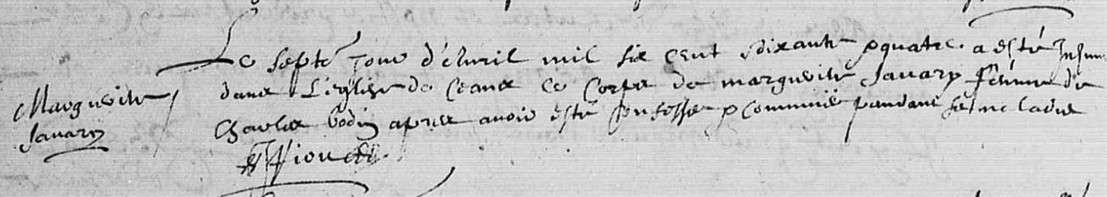 Le septe Jour d'Apvril mil six cent soixante & quatre a esté Inhum
dans L'eglise de Ceans Le Corps de margueritte Javary femme de
Charles bodin apres avoir esté Confesse & Communié pandant sa maladie
Margueritte
Javary